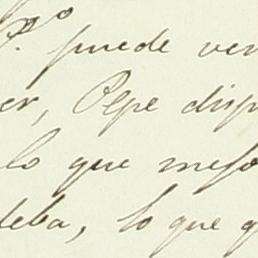 P.º puede ven
er, Pepe disp
lo que mejo
deba, lo que q